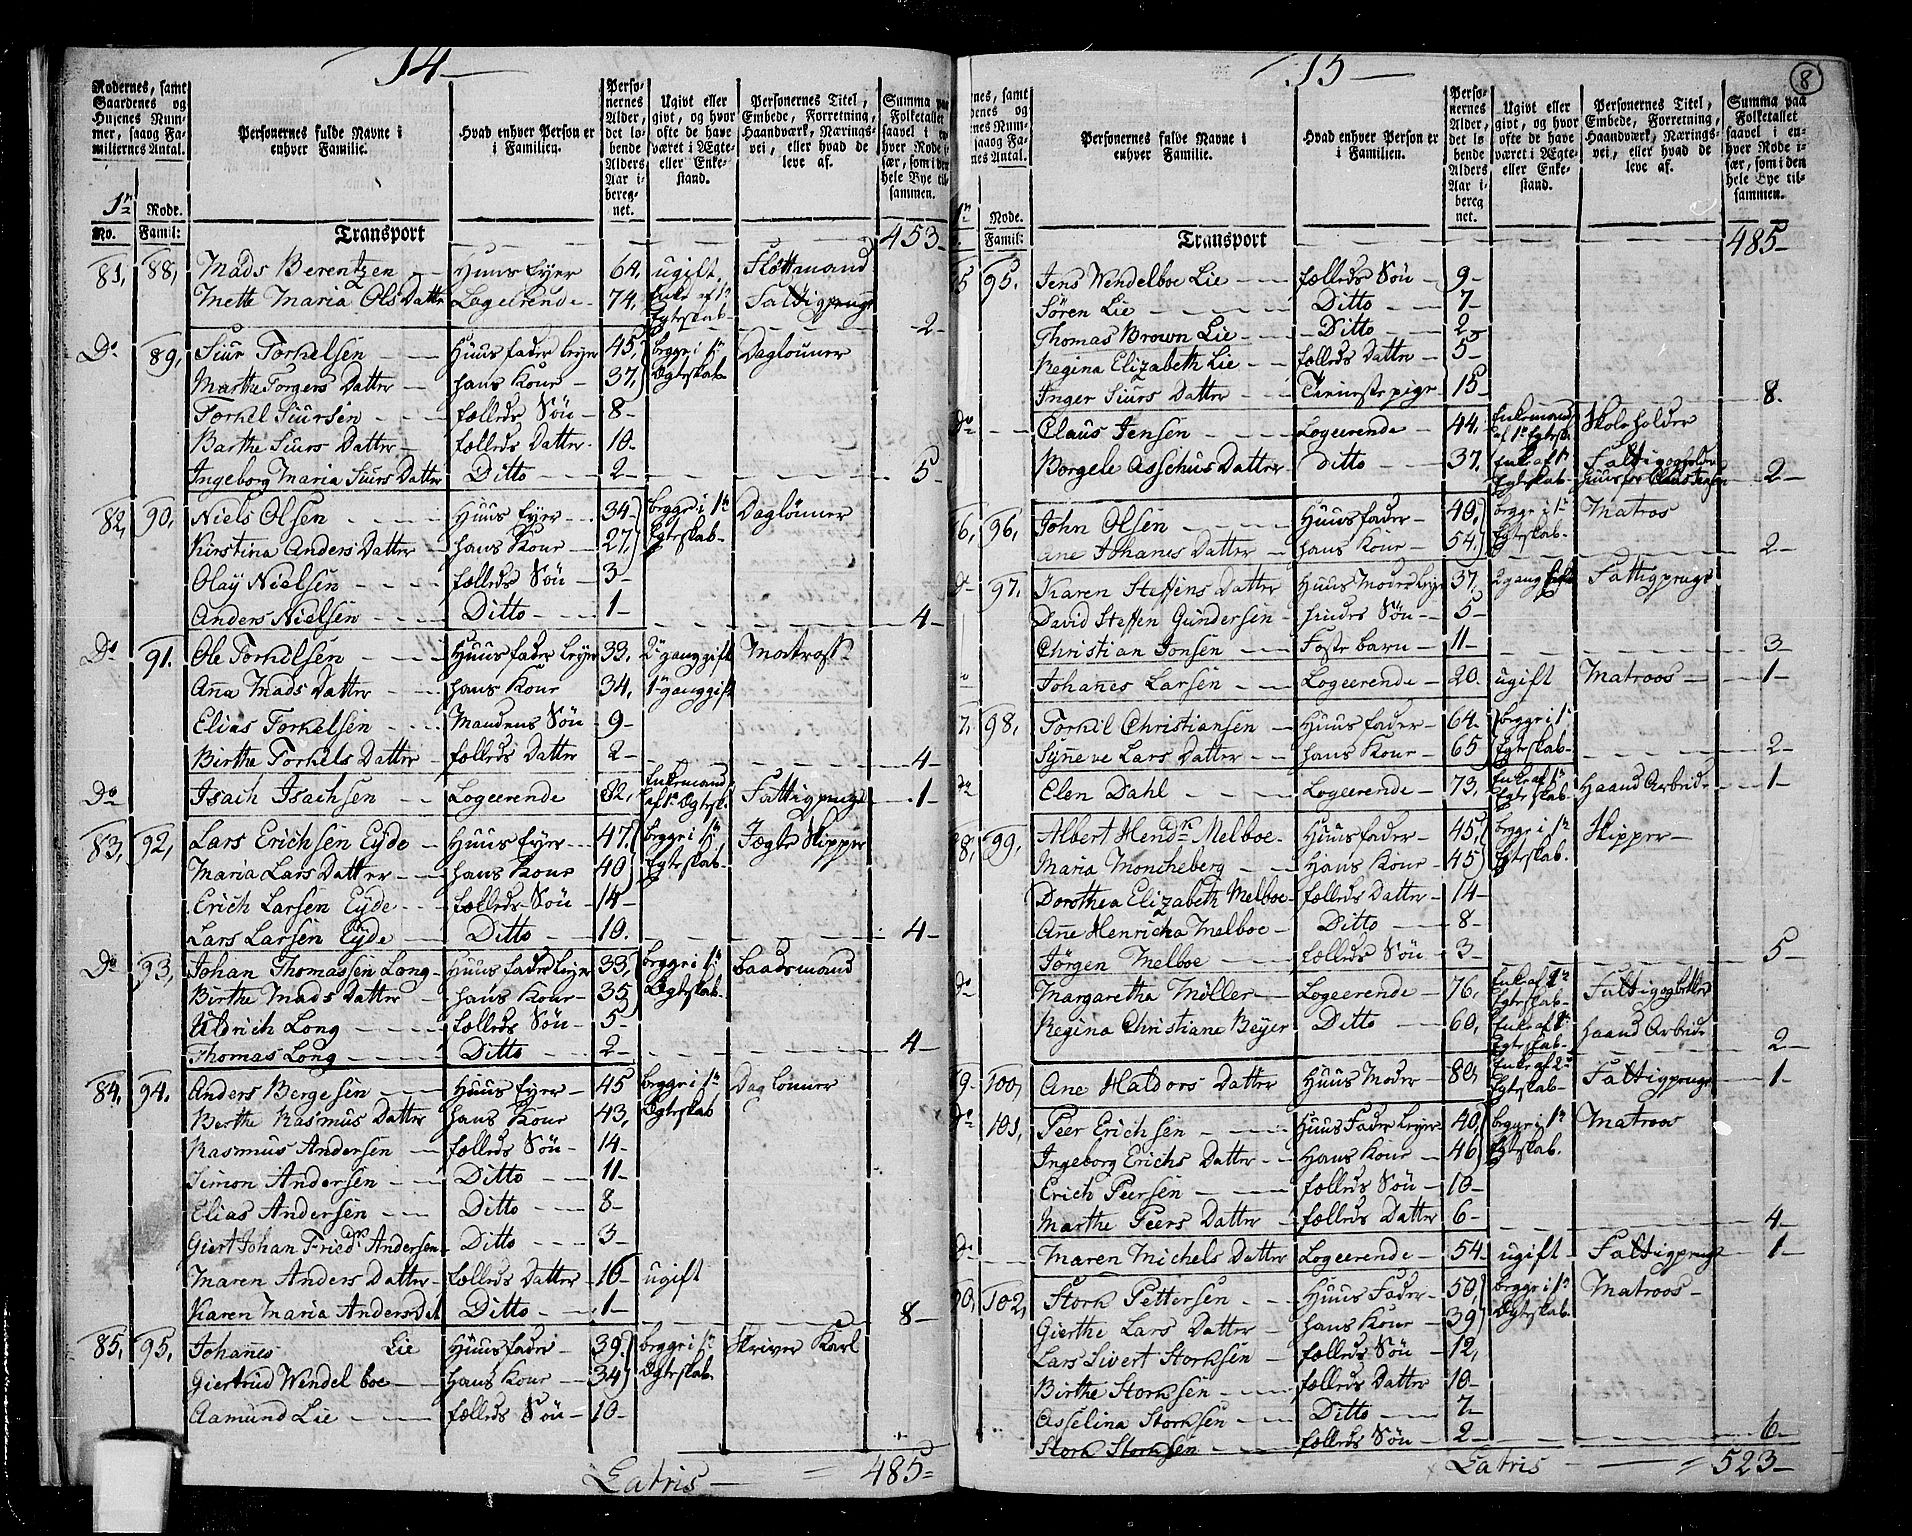 14
Rodernes, samt Gaardenes og Husenes Nummer, saavog Familiernes Antal.
Personernes fulde Navne i enhver Familie.
Hvad enhver Person er i Familien.
Personernes Alder, det løbende Alders Aar iberegnet.
Ugivt eller givt, og hvor ofte de have været i Ægte- eller Enkestand.
Personernes Titel, Embede, Forretning, Haandværk, Næringsvei, eller hvad de leve af.
Summa paa Folketallet saavel i enhver Rode især, som i den hele Bye tilsammen.
1n Rode.
No. Famil:
Transport 453
81, 88, Mads Berentzen Huus Eyer 64, ugift Slottmand
Mette Maria Ols Datter Logeerende 74, Enke af 1n Egteskab Fattigpenge 2
Do 89, Siur Torkelsen Huus fader leyer 45, begge i 1n Daglönner
Marthe Torgers Datter hans Kone 37, Egteskab
Torkel Siursen fælleds Sön 8
Barthe Siurs Datter fælleds Datter 10
Ingeborg Maria Siurs Datter Ditto 2 5
82, 90, Niels Olsen Huus Eyer 34 begge i 1n Daglönner
Kirstina Anders Datter hans Kone 27, Egteskab
Olay Nielsen fælleds Sön 3
Anders Nielsen Ditto 1 4
Do 91. Ole Torkelsen Huus fader leyer 33, 2n gang gift Matros
Ana Mads Datter hans Kone 34, 1n gang gift
Elias Torkelsen Mandens Sön 9
Birthe Torkels Datter fælleds Datter 2 4
Do Isach Isachsen Logeerende 82, Enkemand af 1n Egtesk. Fattigpenge 1
83, 92, Lars Erichsen Eyde Huus Eyer 47, begge i 1n Jægte Skipper
Maria Lars Datter hans Kone 40 Egteskab
Erich Larsen Eyde fælleds Sön 14
Lars Larsen Eyde Ditto 10. 4
Do 93, Johan Thomassen Long Huus fader leyer 33, begge i 1n Baadsmand
Birthe Mads Datter hans Kone 35 Egteskab
Uldrich Long fælleds Sön 5
Thomas Long Ditto 2 4
84, 94, Anders Bergesen Huus Eyer 45 begge i 1n Daglönner
Berthe Rasmus Datter hans Kone 43, Egteskab
Rasmus Andersen fælleds Sön 14
Simon Andersen Ditto 11
Elias Andersen Ditto 8
Giert Johan Fried Andersen Ditto 3
Maren Anders Datter fælleds Datter 16 ugift
Karen Maria Anders Dat Ditto 1 8
85, 95, Johanes Lie Huus fader 39. begge i 1n Skriver Karl
Giertrud Wendelboe hans Kone 34 Egteskab
Aamund Lie fælleds Sön 10
Latris 485
15
8
Personernes fulde Navne i enhver Familie.
Hvad enhver Person er i Familien.
Personernes Alder, det løbende Alders Aar iberegnet.
Ugivt eller givt, og hvor ofte de have været i Ægte- eller Enkestand.
Personernes Titel, Embede, Forretning, Haandværk, Næringsvei, eller hvad de leve af.
Summa paa Folketallet saavel i enhver Rode især, som i den hele Bye tilsammen.
1n Rode.
Famil:
Transport 485
5 95. Jens Wendelboe Lie fælleds Sön 9
Sören Lie Ditto 7
Thomas Brown Lie Ditto 2
Regina Elizabeth Lie fælleds Datter 5
Inger Siurs Datter Tienestepige 15 8
do Claus Jensen Logeerende 44, Enkemand af 1n Egtesk. Skoleholder
Borgele Assehus Datter Ditto 37. Enke af 1n Egteskab Claus Jensen 2
6, 96, John Olsen Huus fader 40, begge i 1n Matros
Ane Johanes Datter hans Kone 54, Egteskab 2
do 97. Karen Steffens Datter Huus Moder leyer 37. 2 gang Fattigpenge
David Steffen Gundersen hindes Sön 5
Christian Jonsen Foste barn 11 3
Johanes Larsen Logeerende 20. ugift Matroos 1
7, 98, Torkil Christiansen Huus fader 64. begge i 1n
Syneve Lars Datter hans Kone 65 Egteskab 2
do Elen Dahl Logeerende 73, Enke af 1n Egteskab Haand Arbeide 1
8, 99, Albert Hend Melboe Huus fader 45, begge i 1n Skipper
Maria Moncheberg Hans Kone 45 Egteskab
Dorothea Elizabeth Melboe fælleds Datter 14
Ane Henricha Melboe Ditto 8
Jörgen Melboe fælleds Sön 3 5
do Margaretha Möller Logeerende 76, Enke af 1n Egteskab
Regina Christiane Beyer Ditto 60, Enke af 1n Egteskab Haand Arbeide 2
9 100, Ane Haldors Datter Huus Moder 80, Enke af 2n Egteskab Fattigpenge 1
do 101, Peer Erichsen Huus Fader leyer 40, begge i 1n Matroos
Ingeborg Erichs Datter Hans Kone 46 Egteskab.
Erich Peersen fælleds Sön 10
Marthe Peers Datter fælleds Datter 6 4
do Maren Michels Datter Logeerende 54 ugift Fattigpenge 1
90, 102, Stork Pettersen Huus Fader 50, begge i 1n Matroos
Gierthe Lars Datter hans Kone 39 Egteskab
Lars Sivert Storksen fælleds Sön 12,
Birthe Storksen fælleds Datter 10
Asselina Storksen Ditto 7
Stork Storksen fælleds Sön 2 6
Latris 523